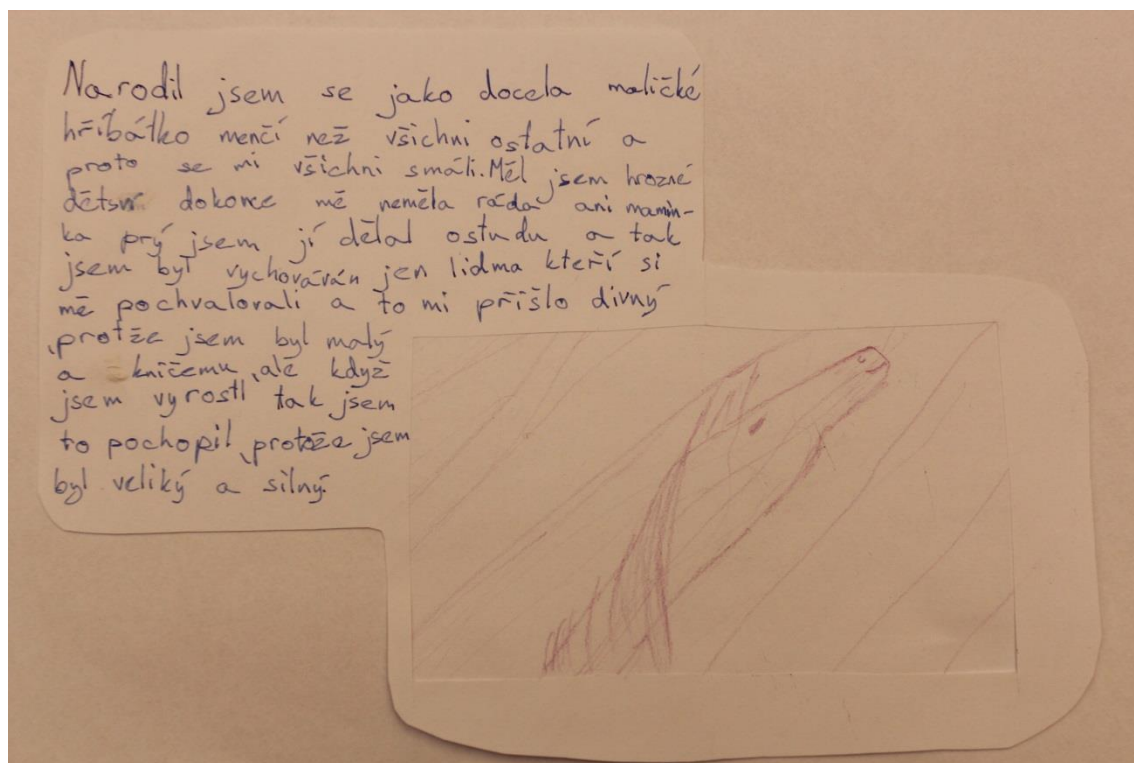 Narodil jsem se jako docela maličké
hříbátko menčí než všichni ostatní a
proto se mi všichni smáli. Měl jsem hrozné
dětsví dokonce mě neměla ráda ani mamin-
ka prý jsem jí dělal ostudu a tak
jsem byl vychováván jen lidma kteří si
mě pochvalovali a to mi přišlo divný
, protže jsem byl malý
a kničemu, ale když
jsem vyrostl tak jsem
to pochopil, protože jsem
byl veliký a silný.